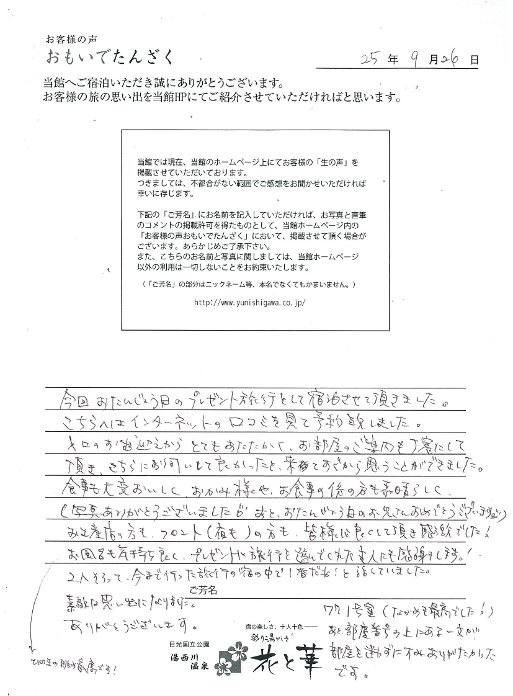 お客様の声
おもいでたんざく
25年9月26日
当館へご宿泊いただき誠にありがとうございます。
お客様の旅の思い出を当館HPにてご紹介させていただければと思います。
当館では現在、当館のホームページ上にてお客様の「生の声」を
掲載させていただいております。
つきましては、不都合がない範囲でご感想をお聞かせいただければ
幸いに存じます。
下記の「ご芳名」にお名前を記入していただければ、お写真と直筆
のコメントの掲載許可を得たものとして、当館ホームページ内の
「お客様の声おもいでたんざく」において、掲載させて頂く場合が
ございます。あらかじめご了承下さい。
また、こちらのお名前と写真に関しましては、当館ホームページ
以外の利用は一切しないことをお約束いたします。
（「ご芳名」の部分はニックネーム等、本名でなくてもかまいません。）
http://www.yunishigawa.co.jp/
今回おたんじょう日のプレゼント旅行として宿泊させて頂きました。
こちらへはインターネットの口コミを見て予約致しました。
お出迎えからとてもあたたかく、お部屋のご案内も丁寧にして
頂き、こちらにお伺いして良かったと、来てすぐから思うことができました。
食事も大変おいしく、おかみ様や、お食事の係の方も素晴らしく、
(写真ありがとうございました!あと、おたんじょう日のお兄さんおめでとうございます)
お土産店の方も、フロント(宿も)の方も、皆様に良くして頂き感激でした!
お風呂も気持ち良く、プレゼントに旅行を選んでくれた主人にも感謝します。!
2人そろって、今まで行った旅行の宿の中で1番だね!と話していました。
ご芳名
素敵な思い出になりました。
ありがとうございます。
771号室(ながめも最高でした!)
あと、部屋番号の上にある一文が
部屋を迷わずにすみありがたかった
です。
最高です!
日光国立公園
湯西川温泉
宿の楽しさ、十人十色
彩り湯かしき
花と華